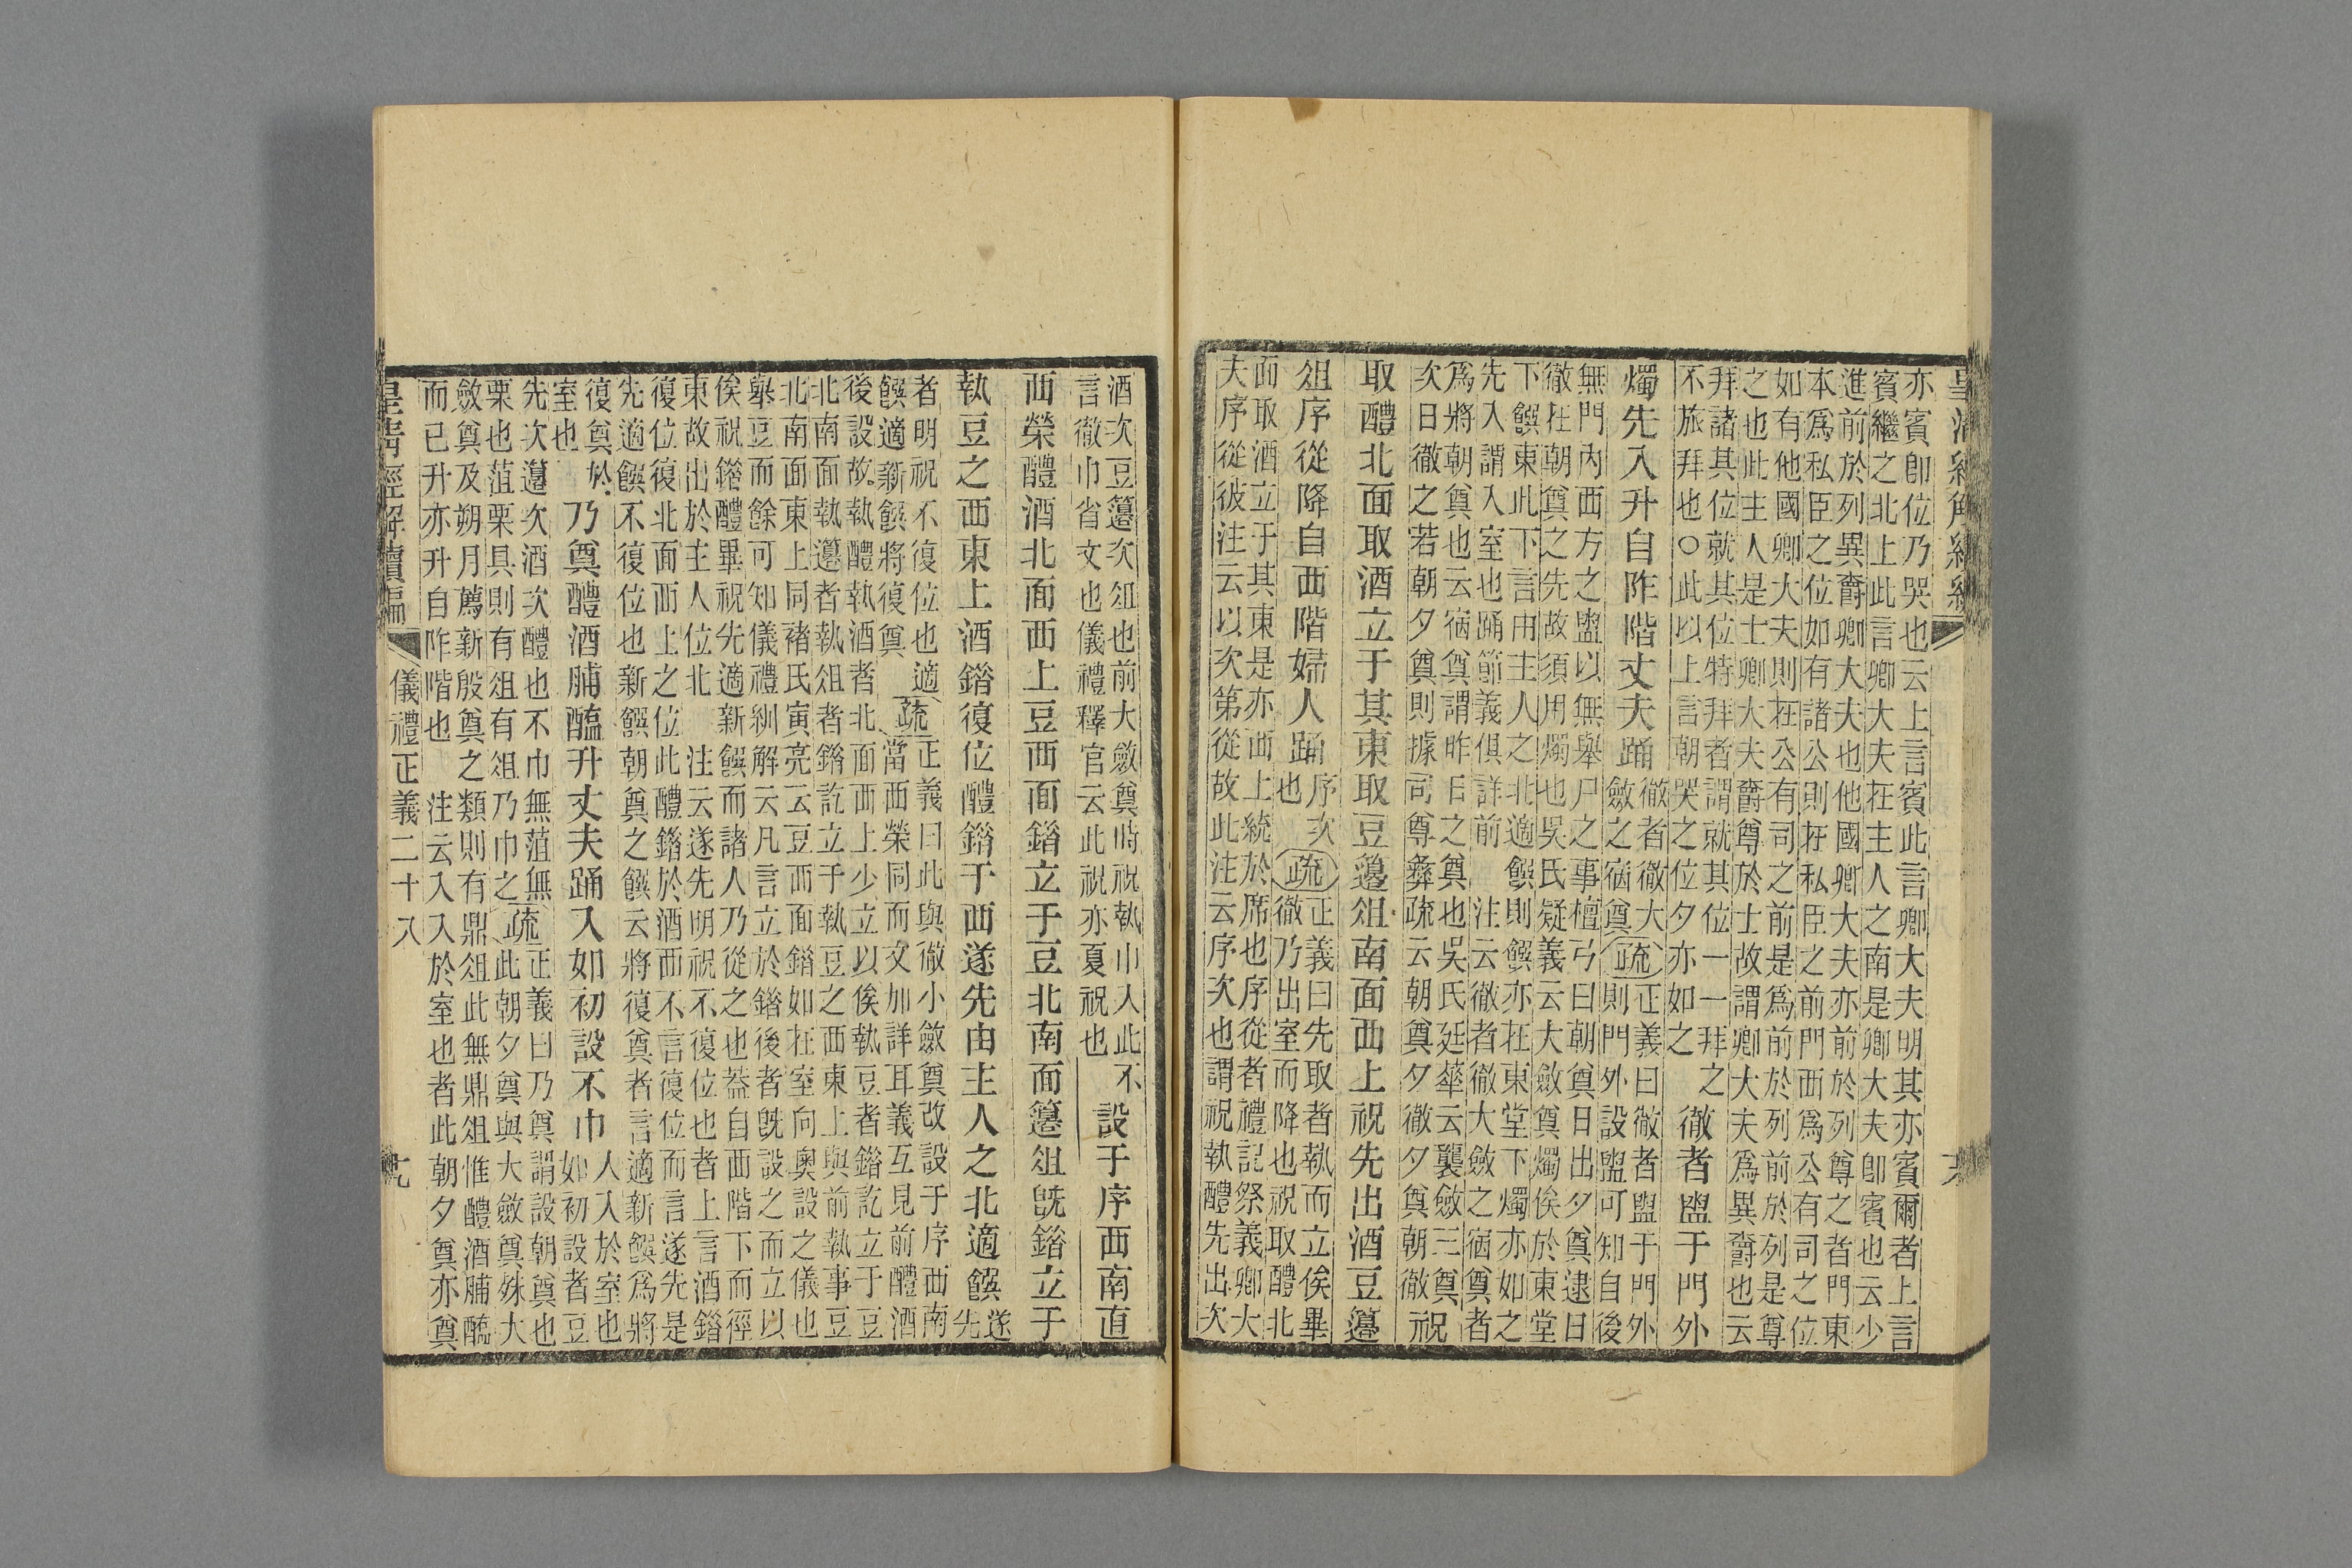 亦賓卽位乃哭也云上言賓此言卿大夫明其亦賓爾者上言
賓繼之北上此言卿大夫在主人之南是卿大夫卽賓也云少
進前於列異爵卿大夫也他國卿大夫亦前於列尊之者門東
本爲私臣之位如有諸公則在私臣之前門西爲公有司之位
如有他國卿大夫則在公有司之前是爲前於列前於列是尊
之也此主人是士卿大夫爵尊於士故謂卿大夫爲異爵也云
拜諸其位就其位特拜者謂就其位一一拜之
不旅拜也○此以上言朝哭之位夕亦如之
徹者盥于門外
燭先入升自阼階丈夫踊
徹者徹大
斂之宿奠
疏
正義曰徹者盥于門外
則門外設盥可知自後
無門內西方之盥以無舉尸之事檀弓曰朝奠日出夕奠逮日
徹在朝奠之先故須用燭也吳氏疑義云大斂奠燭俟於東堂
下饌東此下言由主人之北適饌則饌亦在東堂下燭亦如之
先入謂入室也踊節義俱詳前 注云徹者徹大斂之宿奠者
爲將朝奠也云宿奠謂昨日之奠也吳氏廷華云襲斂三奠
次日徹之若朝夕奠則據司尊彝疏云朝奠夕徹夕奠朝徹
祝
取醴北面取酒立于其東取豆籩俎南面西上祝先出酒豆籩
俎序從降自西階婦人踊
序次
也
疏
正義曰先取者執而立俟畢
徹乃出室而降也祝取醴北
面取酒立于其東是亦西上統於席也序從者禮記祭義卿大
夫序從彼注云以次第從故此注云序次也謂祝執醴先出次
酒次豆籩次俎也前大斂奠時祝執巾入此不
言徹巾省文也儀禮釋官云此祝亦夏祝也
設于序西南直
西榮醴酒北面西上豆西面錯立于豆北南面籩俎旣錯立于
執豆之西東上酒錯復位醴錯于西遂先由主人之北適饌
遂
先
者明祝不復位也適
饌適新饌將復奠
疏
正義曰此與徹小斂奠改設于序西南
當西榮同而文加詳耳義互見前醴酒
後設故執醴執酒者北面西上少立以俟執豆者錯訖立于豆
北南面執籩者執俎者錯訖立于執豆之西東上與前執事豆
北南面東上同褚氏寅亮云豆西面錯如在室向奧設之儀也
舉豆而餘可知儀禮紃解云凡言立於錯後者旣設之而立以
俟祝錯醴畢祝先適新饌而諸人乃從之也葢自西階下而徑
東故出於主人位北 注云遂先明祝不復位也者上言酒錯
復位復北面西上之位此醴錯於酒西不言復位而言遂先是
先適饌不復位也新饌朝奠之饌云將復奠者言適新饌爲將
復奠於
室也
乃奠醴酒脯醢升丈夫踊入如初設不巾
人入於室也
如初設者豆
先次籩次酒次醴也不巾無菹無
栗也菹栗具則有俎有俎乃巾之
疏
正義曰乃奠謂設朝奠也
此朝夕奠與大斂奠殊大
斂奠及朔月薦新殷奠之類則有鼎俎此無鼎俎惟醴酒脯醢
而已升亦升自阼階也 注云入入於室也者此朝夕奠亦奠
皇清經解續編 儀禮正義二十八 九